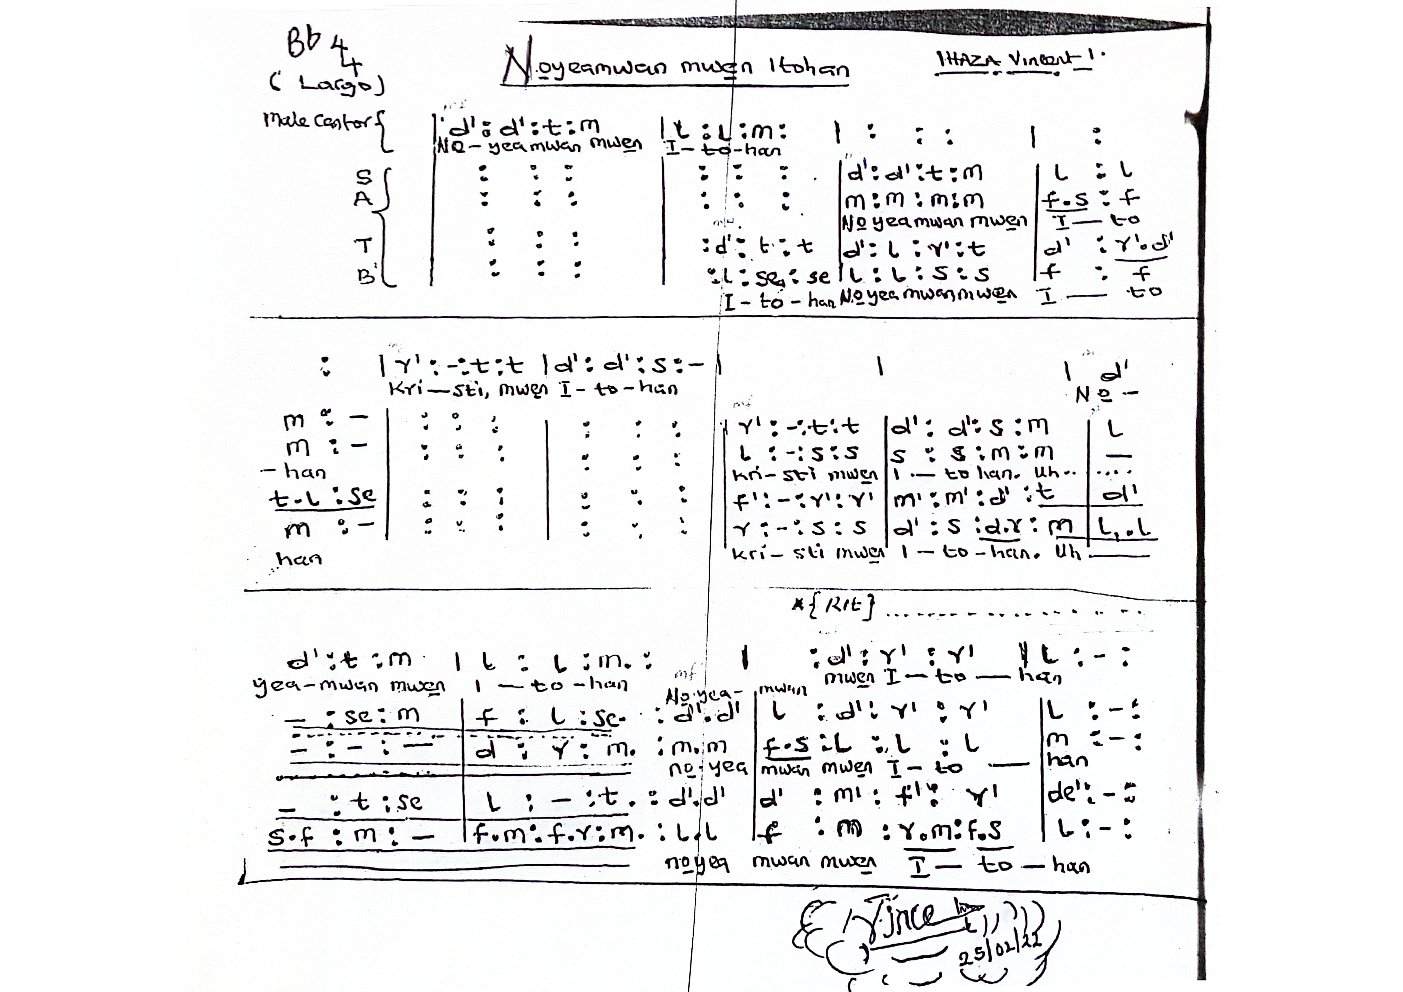 Bb 4
4
Noyeamwan mwen Itohan
IHAZA Vincent I.
( Largo)
Male cantor {
| d' : d' : t : m | t : l : m : | : : : | :
NO - yeamwan mwen I - to - han
S : : : | : : : | d' : d' : t : m | l : l
A : : : | : : : | m : m : m : m | f.s : f
Noyeamwan mwen I — to
T : : : | : d' : t : t | d' : l : r' : t | d' : r'.d'
B : : : | : l : se : se | l : l : s : s | f : f
I - to - han Noyeamwan mwen I — to
: | r' : - : t : t | d' : d' : s : - | | | d'
Kri — sti, mwen I - to - han No -
m : - | : : : | : : : | r' : - : t : t | d' : d' : s : m | l
m : - | : : : | : : : | l : - : s : s | s : s : m : m | —
- han kri - sti mwen I — to han. Uh.. ....
t.l : se | : : : | : : : | f' : - : r' : r' | m' : m' : d' : t | d'
m : - | : : : | : : : | r : - : s : s | d' : s : d.r : m | l,.l
han kri - sti mwen I — to - han. Uh ——
*{Rit} ..................
d' : t : m | t : l : m. : | : d' : r' : r' | l : - :
yea - mwan mwen I — to - han mf No yea - mwan mwen I — to — han
- : se : m | f : l : se. : d'.d' | l : d' : r' : r' | l : - :
- : - : — | d : r : m. : m.m | f.s : l : l : l | m : - :
no.yea mwan mwen I - to — han
- : t : se | l : - : t. : d'.d' | d' : m' : f' : r' | de' : - :
s.f : m : - | f.m : f.r : m. : l.l | f : m : r.m : f.s | l : - :
noyea mwan mwen I — to — han
Vince
25/02/22